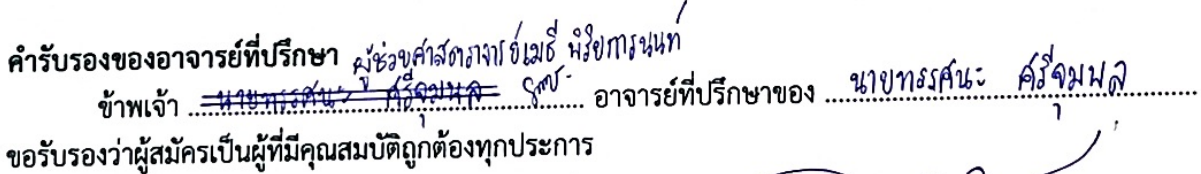 คำรับรองของอาจารย์ที่ปรึกษา ผู้ช่วยศาสตราจารย์เมธี พิริยการนนท์
ข้าพเจ้า นายทรรศนะ ศรีจุมพล อาจารย์ที่ปรึกษาของ นายทรรศนะ ศรีจุมพล
ขอรับรองว่าผู้สมัครเป็นผู้ที่มีคุณสมบัติถูกต้องทุกประการ